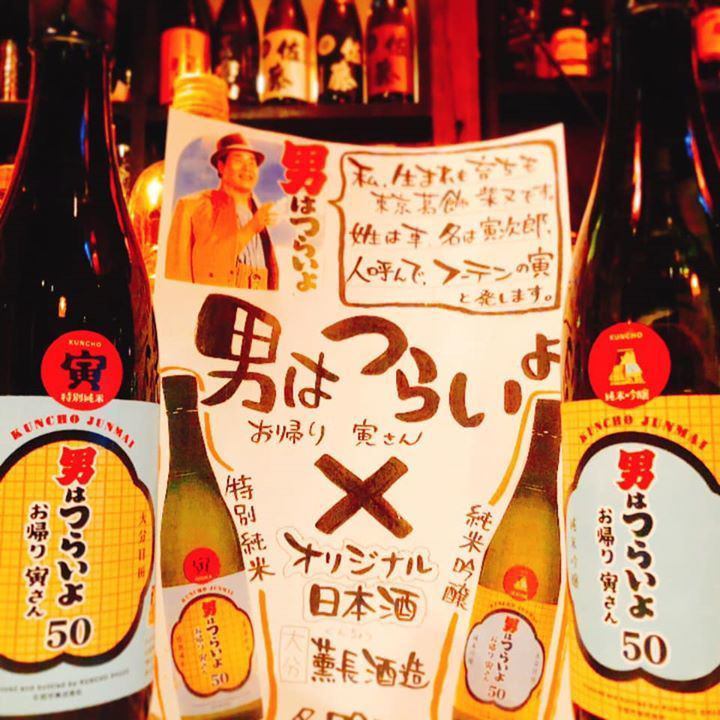 佐藤
佐藤
男はつらいよ
私、生まれも育ちも
東京葛飾 柴又です。
姓は車、名は寅次郎、
人呼んで、フーテンの寅
と発します。
男はつらいよ
お帰り 寅さん
×
特別純米
純米吟醸
オリジナル
日本酒
くんちょう
大分
薫長酒造
KUNCHO
寅
特別純米
KUNCHO JUNMAI
男はつらいよ
お帰り 寅さん
50
大分日田
KUNCHO
純米吟醸
KUNCHO JUNMAI
男はつらいよ
お帰り 寅さん
50
純米吟醸
寅
KUNCHO JUNMAI
男はつらいよ
お帰り 寅さん
50
KUNCHO JUNMAI
男はつらいよ
お帰り 寅さん
50